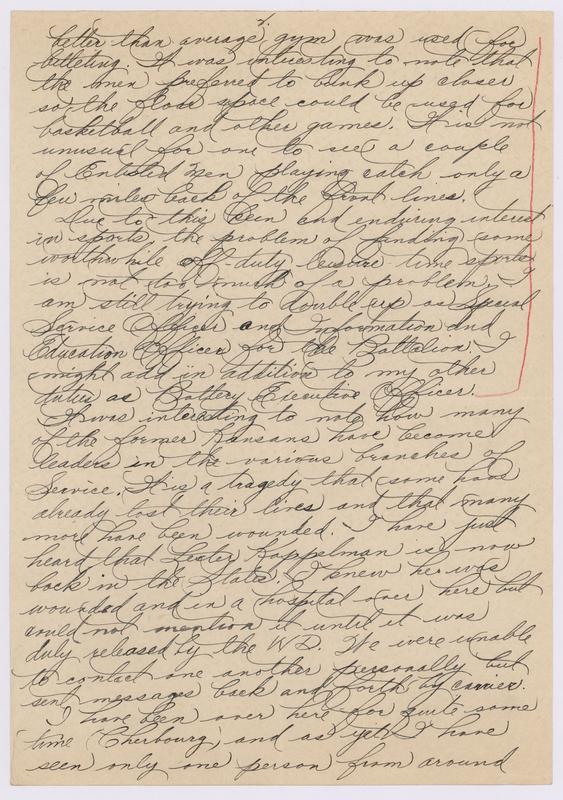 2.
better than average, gym was used for
billeting. It was interesting to note that
the men preferred to bunk up closer
so the floor space could be used for
basketball and other games. It is not
unusual for one to see a couple
of Enlisted Men playing catch only a
few miles back of the front lines.
Due to this keen and enduring interest
in sports, the problem of finding some
worthwhile off-duty leisure time sports
is not too much of a problem. I
am still trying to double up as Special
Service Officer and Information and
Education Officer for the Battalion. I
might add in addition to my other
duties as Battery Executive Officer.
It was interesting to note how many
of the former Kansans have become
leaders in the various branches of
Service. It is a tragedy that some have
already lost their lives and that many
more have been wounded. I have just
heard that Lester Kappelman is now
back in the States. I knew he was
wounded and in a hospital over here but
could not mention it until it was
duly released by the W.D. We were unable
to contact one another personally but
sent messages back and forth by carrier.
I have been over here for quite some
time (Cherbourg) and as yet I have
seen only one person from around